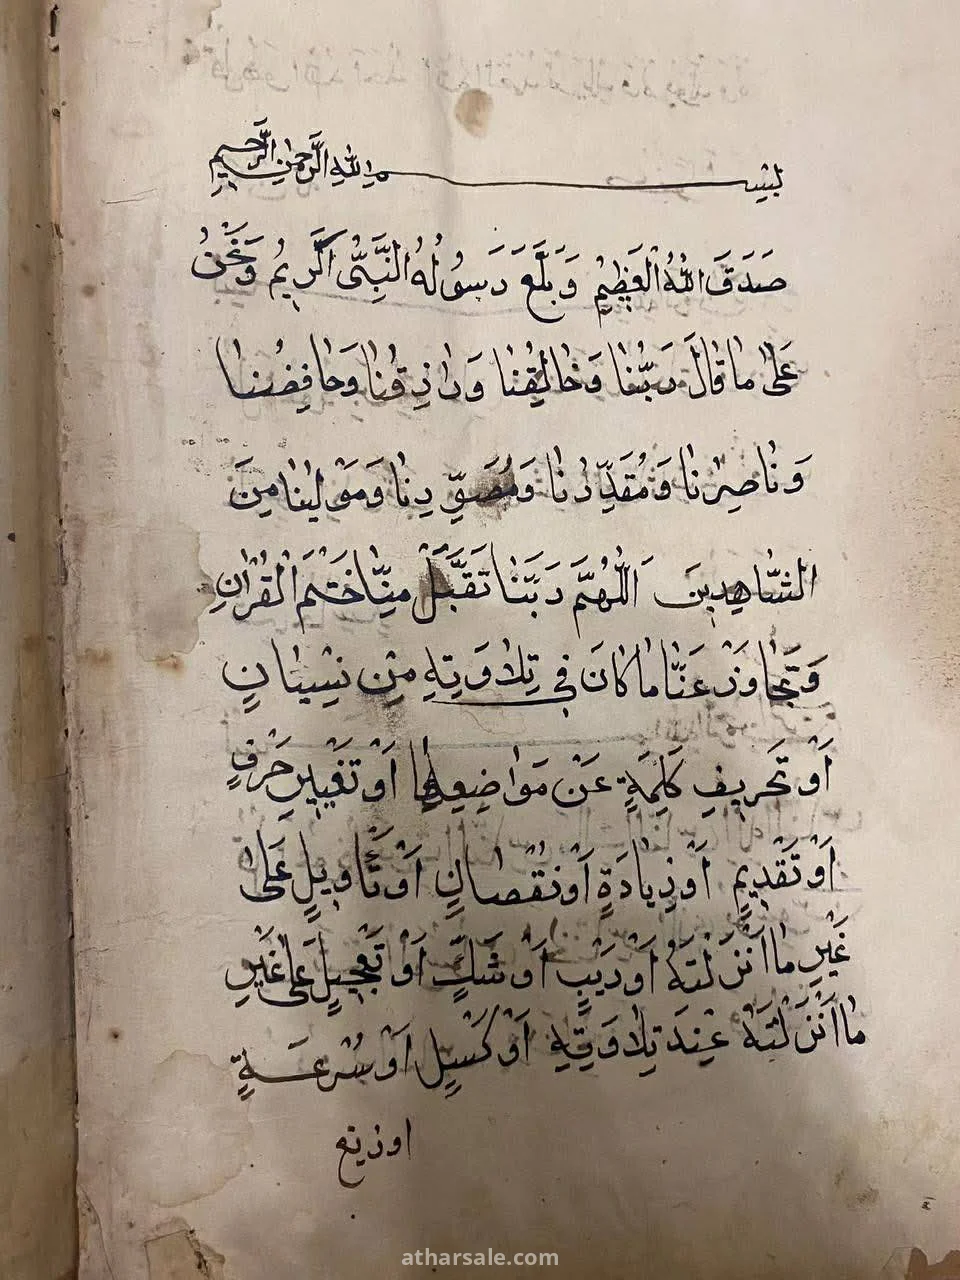 بسم الله الرحمن الرحيم
صَدَقَ اللهُ الْعَظِيمُ وَبَلَّغَ رَسُولُهُ النَّبِيُّ الْكَرِيمُ وَنَحْنُ
عَلَىٰ مَا قَالَ رَبُّنَا وَخَالِقُنَا وَرَازِقُنَا وَحَافِضُنَا
وَنَاصِرِنَا وَمُقَدِّرُنَا وَمُصَوِّرِنَا وَمَوْلَيٰنَا مِنَ
الشَّاهِدِينَ اَللّٰهُمَّ رَبَّنَا تَقَبَّلْ مِنَّا خَتْمَ الْقُرْاٰنِ
وَتَجَاوَزْ عَنَّا مَا كَانَ فِي تِلَاوَتِهِ مِنْ نِسْيَانٍ
اَوْ تَحْرِيفِ كَلِمَةٍ عَنْ مَوَاضِعِهَا اَوْ تَغْيِيرِ حَرْفٍ
اَوْ تَقْدِيمٍ اَوْ زِيَادَةٍ اَوْ نُقْصَانٍ اَوْ تَأْوِيلٍ عَلَىٰ
غَيْرِ مَا اَنْزَلْتَهُ اَوْ رَيْبٍ اَوْ شَكٍّ اَوْ تَعْجِيلٍ عَلَىٰ غَيْرِ
مَا اَنْزَلْتَهُ عِنْدَ تِلَاوَتِهِ اَوْ كَسَلٍ اَوْ سُرْعَةٍ
اوزيغ
atharsale.com